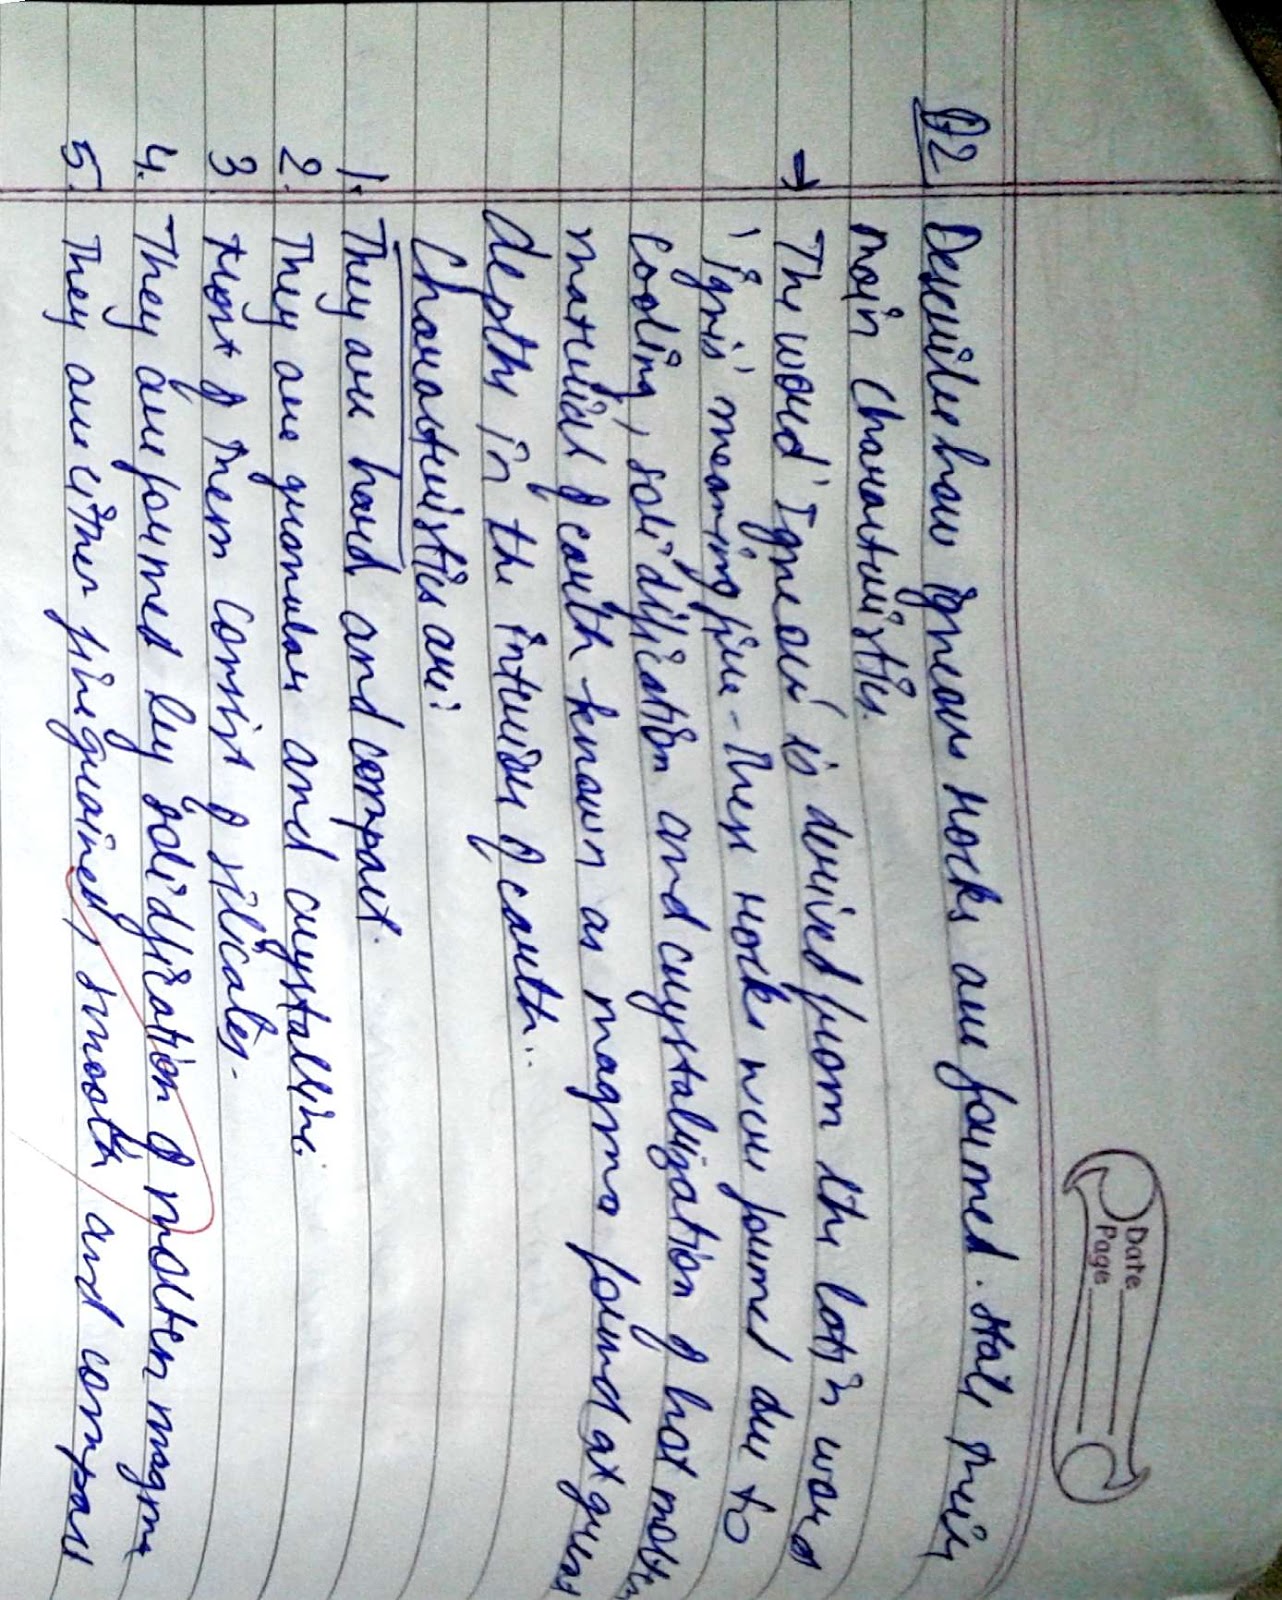 Date
Page
Q2 Describe how igneous rocks are formed. State their
main characteristics.
→ The word 'Igneous' is derived from the latin word
'Ignis' meaning fire - These rocks were formed due to
cooling, solidification and crystalization of hot molten
material of earth known as magma found at great
depths in the interior of earth..
Characteristics are:
1. They are hard and compact.
2. They are granular and crystalline.
3. Most of them consist of silicates.
4. They are formed by solidification of molten magma
5. They are either fine grained, smooth and compact